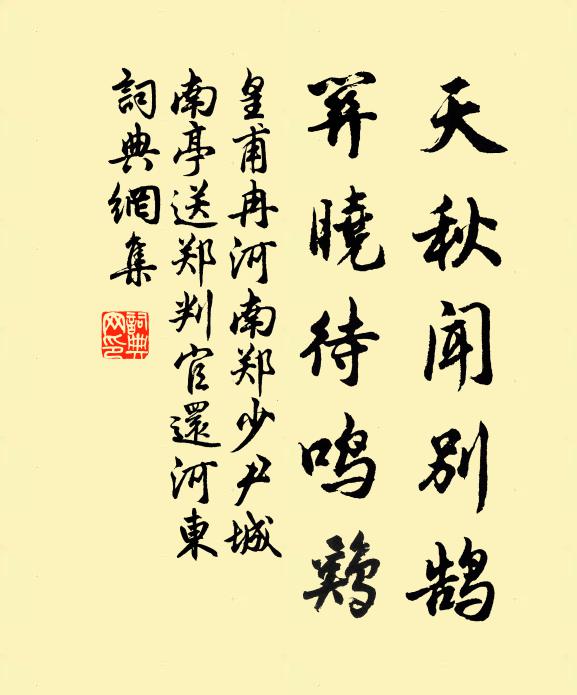 天秋闻别鹄
关晓待鸣鸡
皇甫冉河南郑少尹城
南亭送郑判官還河東
詞典網集
詞典
网印